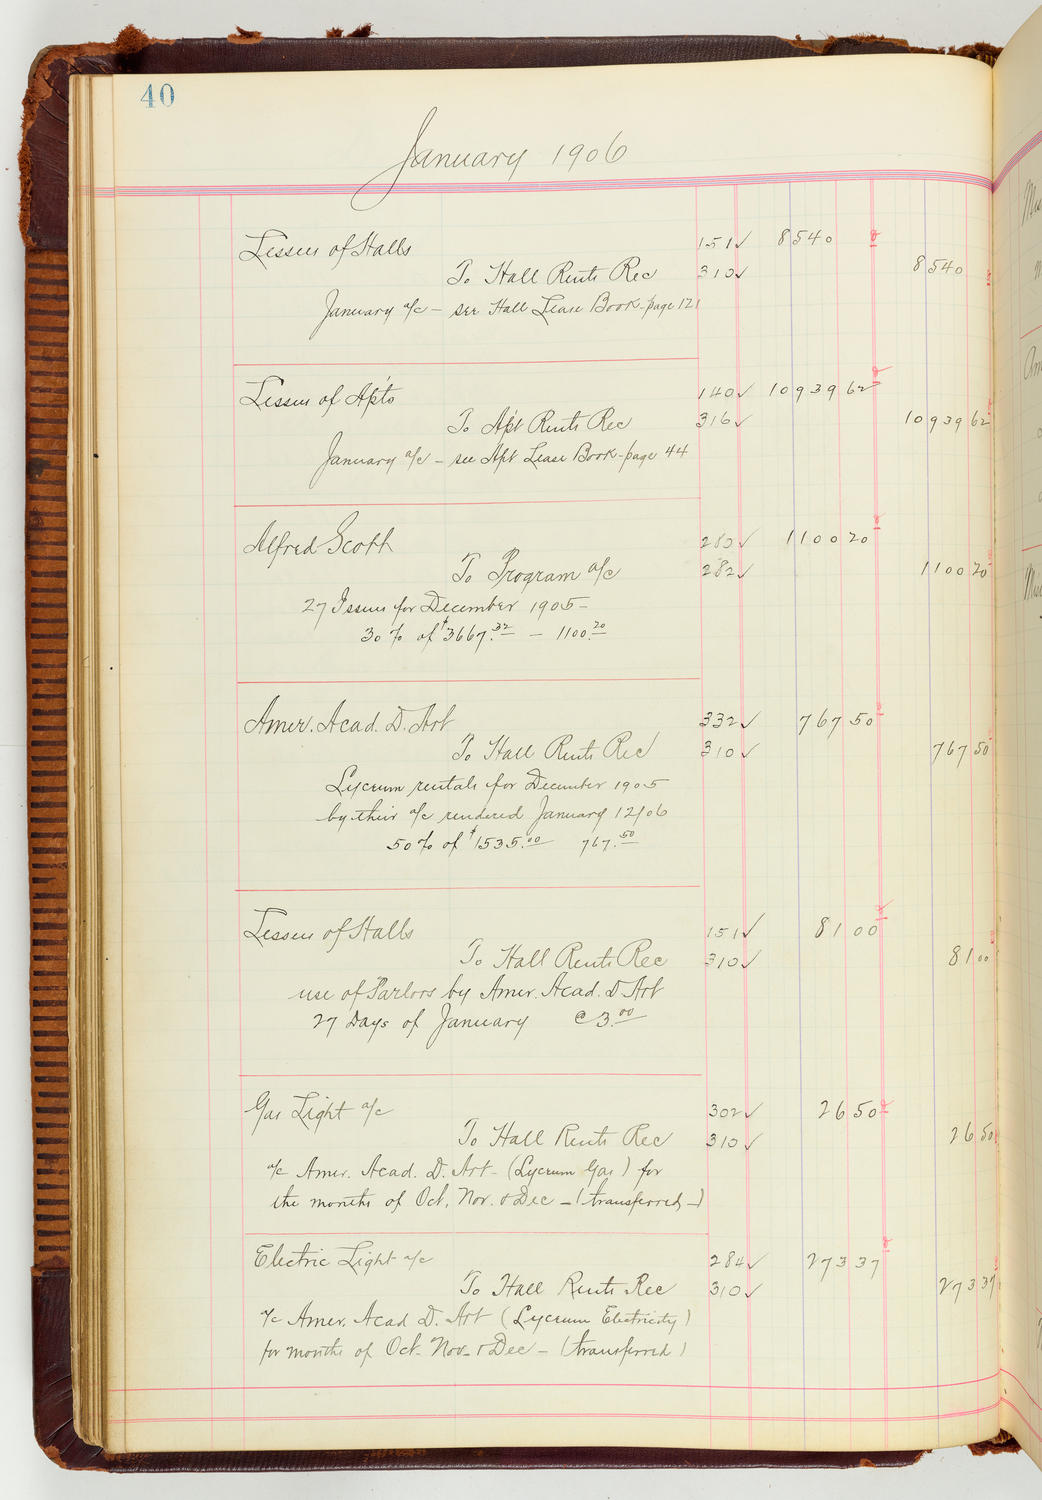 40
January 1906
Lessees of Halls 151✓ 8540
To Hall Rents Rec 310✓ 8540
January a/c – see Hall Lease Book – page 121
Lessees of Apts 140✓ 10939 62
To Apt Rents Rec 316✓ 10939 62
January a/c – see Apt Lease Book – page 44
Alfred Scott 283✓ 1100 20
To Program a/c 282✓ 1100 20
27 Issues for December 1905 –
30% of $3667.32 – 1100.20
Amer. Acad. D. Art 332✓ 767 50
To Hall Rents Rec 310✓ 767 50
Lyceum rentals for December 1905
by their a/c rendered January 12/06
50% of $1535.00 767.50
Lessees of Halls 151✓ 81 00
To Hall Rents Rec 310✓ 81 00
use of Parlors by Amer. Acad. D Art
27 Days of January @ 3.00
Gas Light a/c 302✓ 26 50
To Hall Rents Rec 310✓ 26 50
a/c Amer. Acad. D. Art – (Lyceum Gas) for
the months of Oct, Nov. & Dec – (transferred –)
Electric Light a/c 284✓ 273 37
To Hall Rents Rec 310✓ 273 37
a/c Amer. Acad D. Art (Lyceum Electricity)
for months of Oct – Nov – & Dec – (transferred)